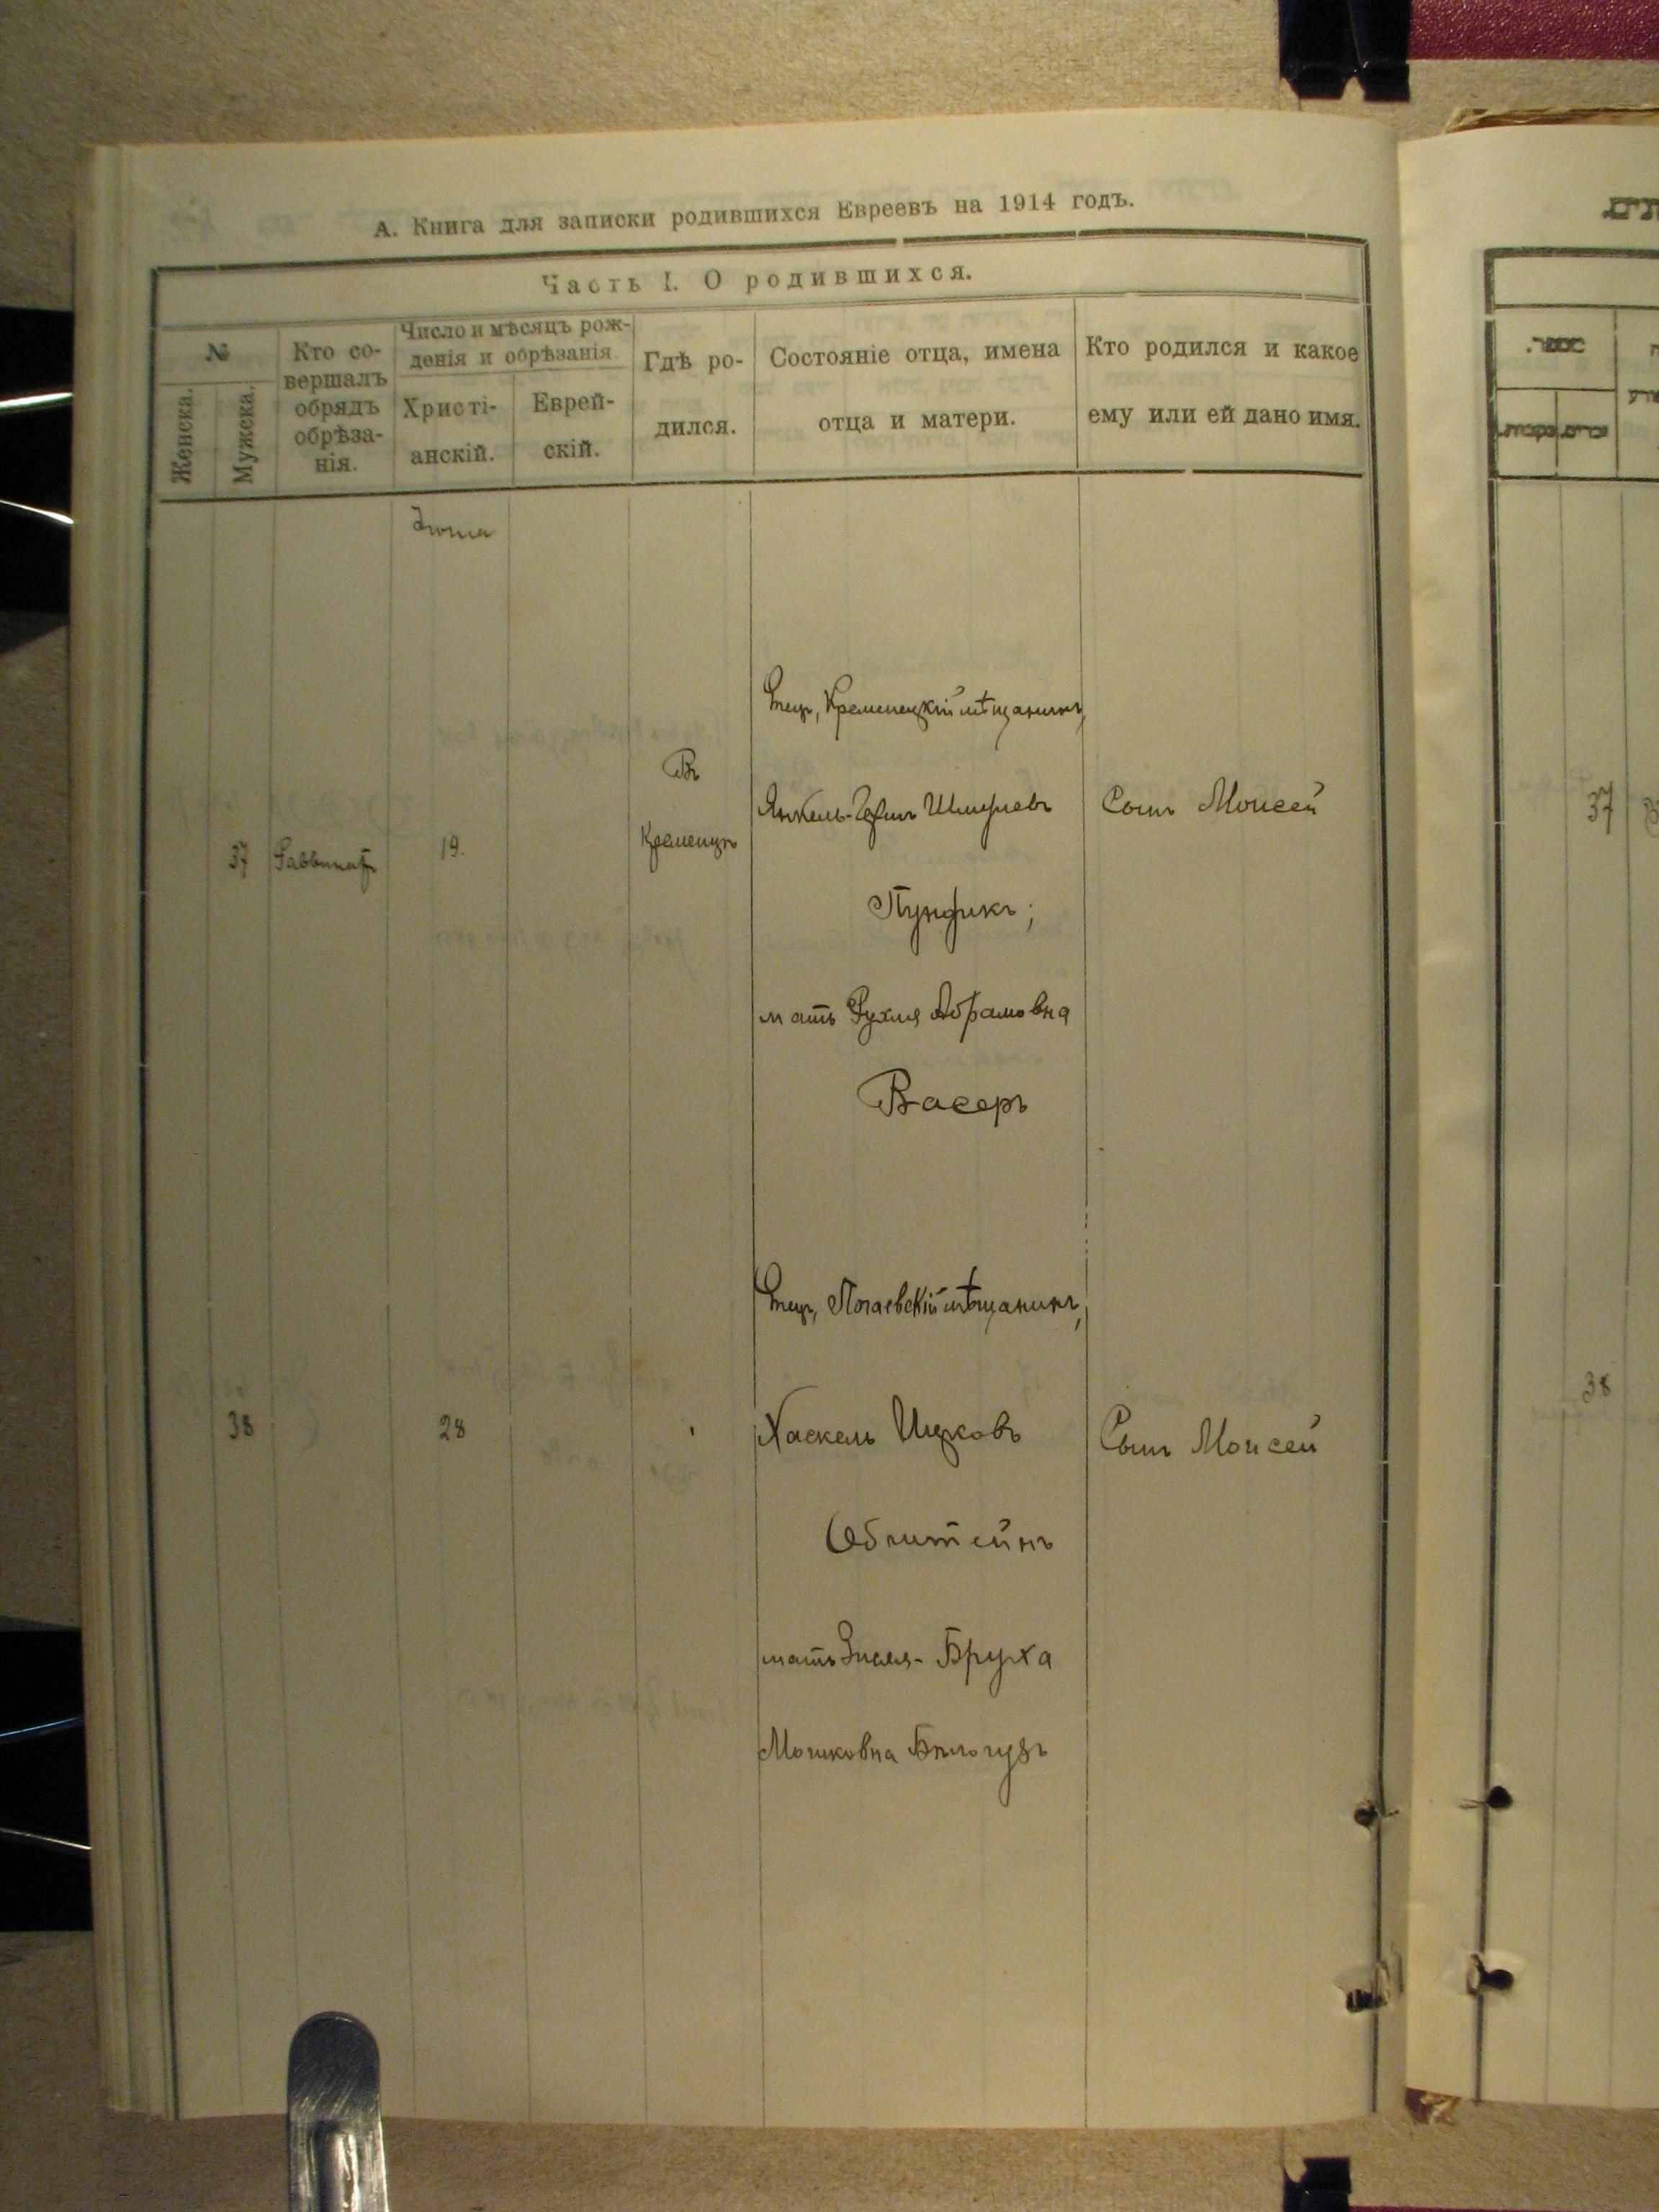 А. Книга для записки родившихся Евреевъ на 1914 годъ.
Часть I. О родившихся.
№
Женска.
Мужска.
Кто со-
вершалъ
обрядъ
обрѣза-
нія.
Число и мѣсяцъ рож-
денія и обрѣзанія
Христі-
анскій.
Еврей-
скій.
Гдѣ ро-
дился.
Состояніе отца, имена
отца и матери.
Кто родился и какое
ему или ей дано имя.
37
19.
Въ
Кременцѣ
Отецъ, Кременецкій мѣщанинъ,
Янкель-Гершъ
Пундикъ;
мать Рухля Абрамовна
Васеръ
Сынъ Моисей
38
28
Отецъ, Почаевскій мѣщанинъ,
Хаскель Ицковъ
мать Бруха
Мошковна
Сынъ Моисей
37
38